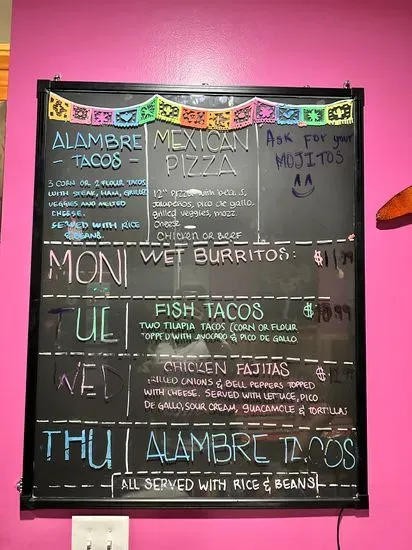 ALAMBRE
- TACOS -
3 CORN OR 2 FLOUR TACOS
WITH STEAK, HAM, GRILLED
VEGGIES AND MELTED
CHEESE.
SERVED WITH RICE
& BEANS.
MEXICAN
PIZZA
12" PIZZA with beans,
Jalapeños, pico de gallo
grilled veggies, mozz
cheese
CHICKEN OR BEEF
Ask For your
MOJITOS
MON
WET BURRITOS:
TUE
FISH TACOS
TWO TILAPIA TACOS (CORN OR FLOUR
TOPPED WITH AVOCADO & PICO DE GALLO.
WED
CHICKEN FAJITAS
GRILLED ONIONS & BELL PEPPERS TOPPED
WITH CHEESE. SERVED WITH LETTUCE, PICO
DE GALLO, SOUR CREAM, GUACAMOLE & TORTILLAS
THU
ALAMBRE TACOS
ALL SERVED WITH RICE & BEANS